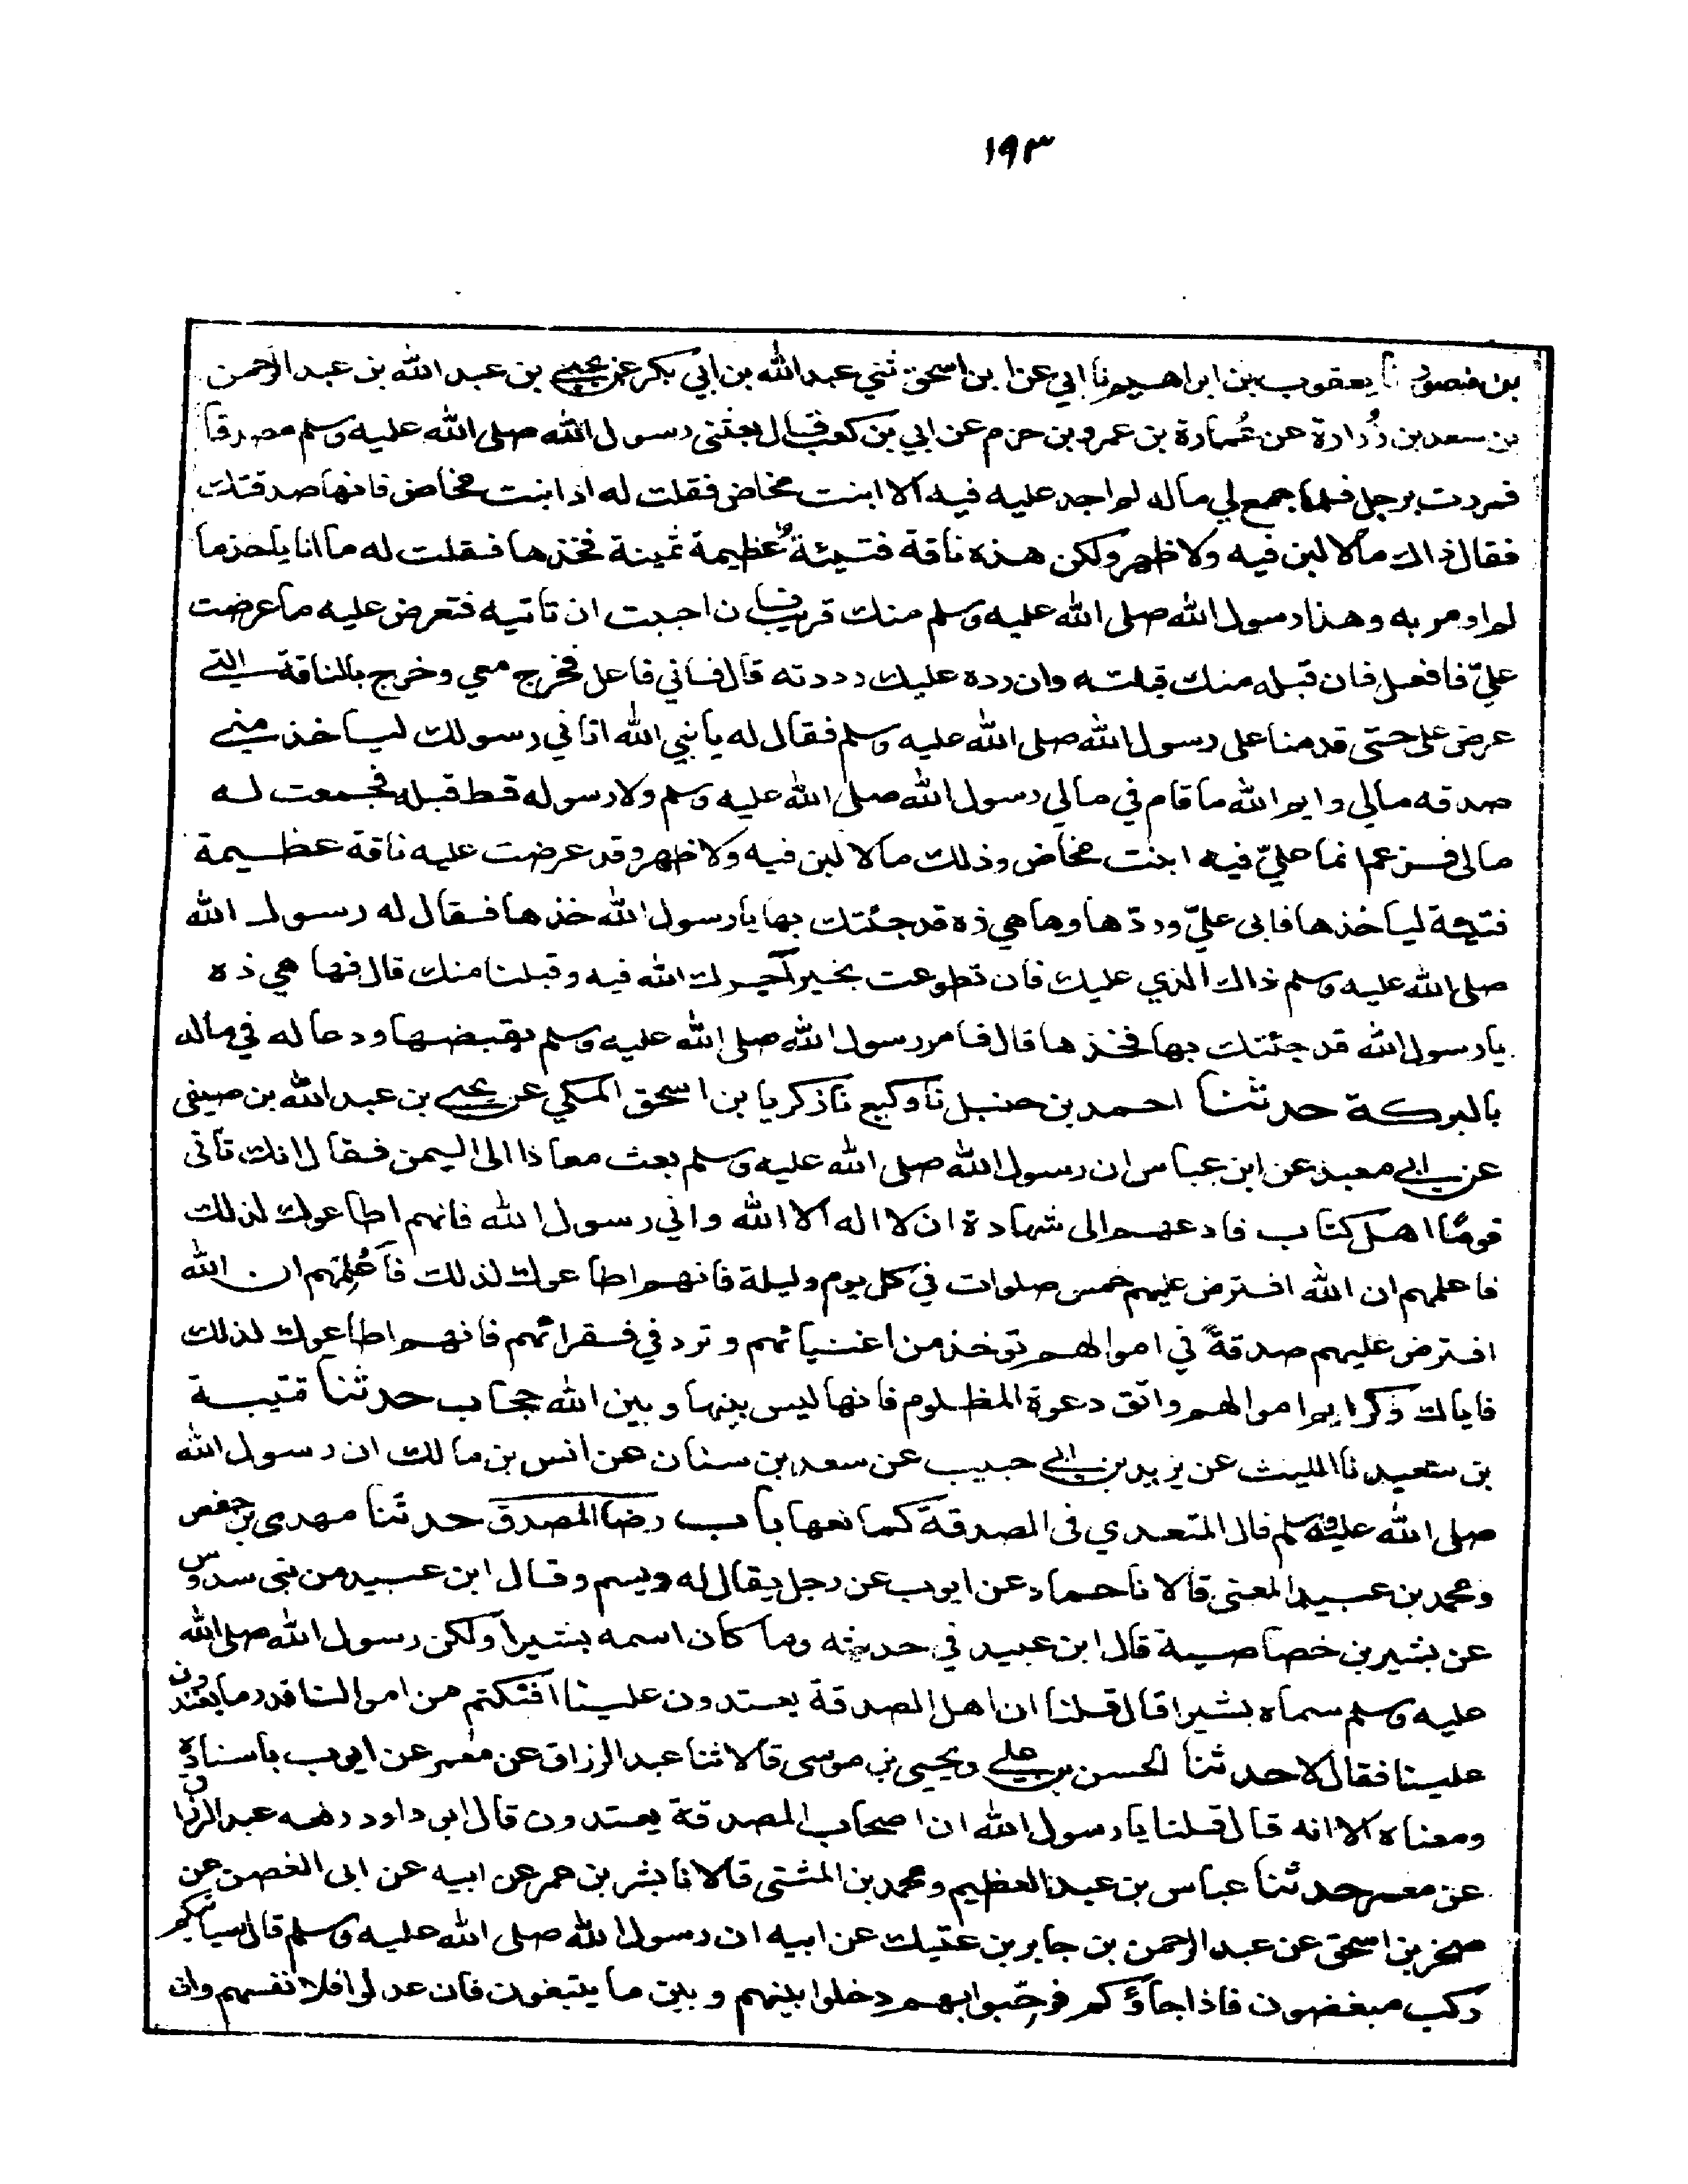 ١٩٣
بن منصور نا يعقوب بن ابراهيم نا ابي عن ابن اسحق ثني عبد الله بن ابي بكر عن يحيى بن عبد الله بن عبد الرحمن
بن سعد بن زُرارة عن عُمارة بن عمرو بن حزم عن ابي بن كعب قال بعثني رسول الله صلى الله عليه وسلم مصدقا
فمررت برجل فلما جمع لي ماله لم اجد عليه فيه الا ابنت مخاض فقلت له اد ابنت مخاض فانها صدقتك
فقال ذاك مالا لبن فيه ولا ظهر ولكن هذه ناقة فتيئة عظيمة ثمينة فخذها فقلت له ما انا باخذ ما
لم اومر به وهذا رسول الله صلى الله عليه وسلم منك قريب فان احببت ان تاتيه فتعرض عليه ما عرضت
عليّ فافعل فان قبله منك قبلته وان رده عليك رددته قال فاني فاعل فخرج معي وخرج بالناقة التي
عرض علي حتى قدمنا على رسول الله صلى الله عليه وسلم فقال له يا نبي الله اتاني رسولك لياخذ مني
صدقه مالي وايم الله ما قام في مالي رسول الله صلى الله عليه وسلم ولا رسوله قط قبله فجمعت له
مالي فزعم انما عليّ فيه ابنت مخاض وذلك مالا لبن فيه ولا ظهر وقد عرضت عليه ناقة عظيمة
فتيئة لياخذها فابى عليّ وردّها وها هي ذه قد جئتك بها يا رسول الله خذها فقال له رسول الله
صلى الله عليه وسلم ذاك الذي عليك فان تطوعت بخير آجرك الله فيه وقبلنا منك قال فها هي ذه
يا رسول الله قد جئتك بها فخذها قال فامر رسول الله صلى الله عليه وسلم بقبضها ودعا له في ماله
بالبركة حدثنا احمد بن حنبل نا وكيع نا زكريا بن اسحق المكي عن يحيى بن عبد الله بن صيفى
عن ابي معبد عن ابن عباس ان رسول الله صلى الله عليه وسلم بعث معاذا الى اليمن فقال انك تأتى
قومًا اهل كتاب فادعهم الى شهادة ان لا اله الا الله واني رسول الله فانهم اطاعوك لذلك
فاعلمهم ان الله افترض عليهم خمس صلوات في كل يوم وليلة فانهم اطاعوك لذلك فأَعْلِمْهم ان الله
افترض عليهم صدقةً في اموالهم توخذ من اغنيائهم وترد في فقرائهم فانهم اطاعوك لذلك
فاياك وكرايم اموالهم واتق دعوة المظلوم فانها ليس بينها وبين الله حجاب حدثنا قتيبة
بن سعيد نا الليث عن يزيد بن ابي حبيب عن سعد بن سنان عن انس بن مالك ان رسول الله
صلى الله عليه وسلم قال المتعدي فى الصدقة كمانعها باب رضا المصدق حدثنا مهدى بن حفص
ومحمد بن عبيد المعنى قالا نا حماد عن ايوب عن رجل يقال له ديسم وقال ابن عبيد من بنى سدوس
عن بشير بن خصاصية قال ابن عبيد في حديثه وما كان اسمه بشيرا ولكن رسول الله صلى الله
عليه وسلم سماه بشيرا قال قلنا ان اهل الصدقة يعتدون علينا افنكتم من اموالنا قدر ما يعتدون
علينا فقال لا حدثنا الحسن بن علي ويحيى بن موسى قالا ثنا عبد الرزاق عن معمر عن ايوب باسناده
ومعناه الا انه قال قلنا يا رسول الله ان اصحاب الصدقة يعتدون قال ابو داود رفعه عبد الرزاق
عن معمر حدثنا عباس بن عبد العظيم ومحمد بن المثنى قالا نا بشر بن عمر عن ابيه عن ابى الغصن عن
صخر بن اسحق عن عبد الرحمن بن جابر بن عتيك عن ابيه ان رسول الله صلى الله عليه وسلم قال سياتيكم
ركب مبغضون فاذا جاؤكم فرحّبوا بهم وخلوا بينهم وبين ما يبتغون فان عدلوا فلانفسهم وان